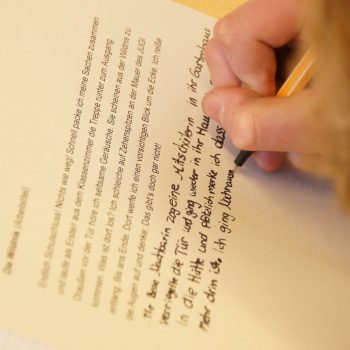 Die Wildnis (Arbeitstitel)
Endlich Schulschluss! Nichts wie weg! Schnell packe ich meine Sachen zusammen
und laufe als Erste/r aus dem Klassenzimmer die Treppe runter zum Ausgang.
Draußen vor der Tür höre ich seltsame Geräusche. Sie scheinen aus der Wildnis zu
kommen. Was ist dort los? Ich schleiche auf Zehenspitzen an der Mauer des JUGI
entlang. Bis ans Ende. Dort werfe ich einen vorsichtigen Blick um die Ecke. Ich reiße
die Augen auf und denke: Das gibt's doch gar nicht!
Die Böse Nachbarin zog eine Mitschülerin in ihr Gartenhaus
verriegelte die Tür und ging weiter in ihr Haus
in die Hütte und Plötzlich merke ich dass
mehr drin ist. Ich ging